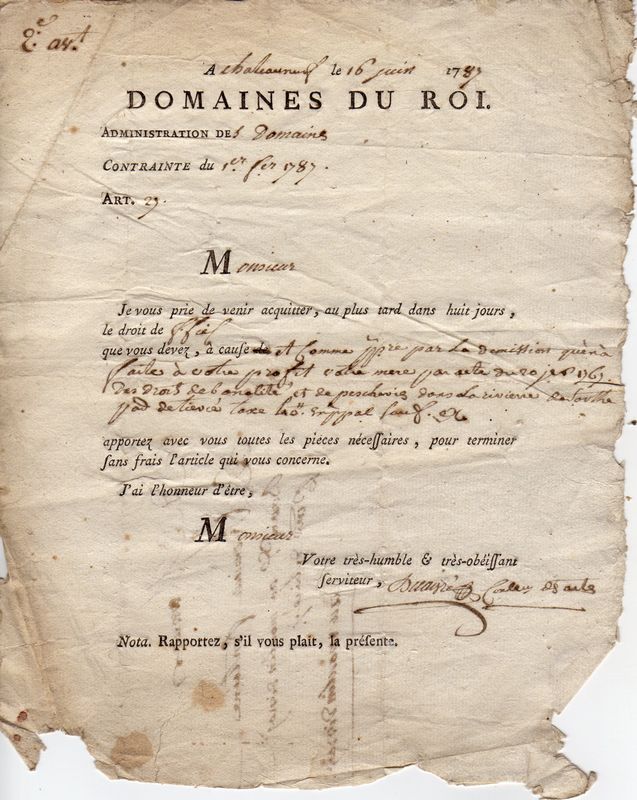 2.e av.t
A chateauneuf le 16 juin 1787
DOMAINES DU ROI.
ADMINISTRATION DES Domaines
CONTRAINTE du 1.er fer 1787.
ART. 29.
Monsieur
Je vous prie de venir acquitter, au plus tard dans huit jours,
le droit de ffief
que vous devez, à cause de et Comme ppre par La demission qu'en a
faite à votre profit votre mere par acte du 20 1765
des droits de banalité et de pescheries dans La riviere de Sarthe
apportez avec vous toutes les pieces nécessaires, pour terminer
sans frais l'article qui vous concerne.
J'ai l'honneur d'être,
Monsieur
Votre très-humble & très-obéissant
serviteur, Conleur des actes
Nota. Rapportez, s'il vous plait, la présente.